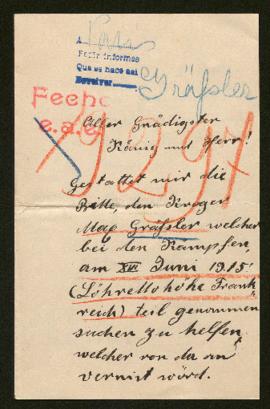 A
Pedir informes
Que se hace así
Devolver
Gräfsler
Fecho
e.a.e.
Aller Gnädigster
König und Herr!
Gestattet mir die
Bitte, den Krieger
Max Gräfsler welcher
bei den Kämpfen,
am XVI Juni 1915
(Löhrettohöhe Frank
reich) teil genommen
suchen zu helfen,
welcher von da an
vermist würd.